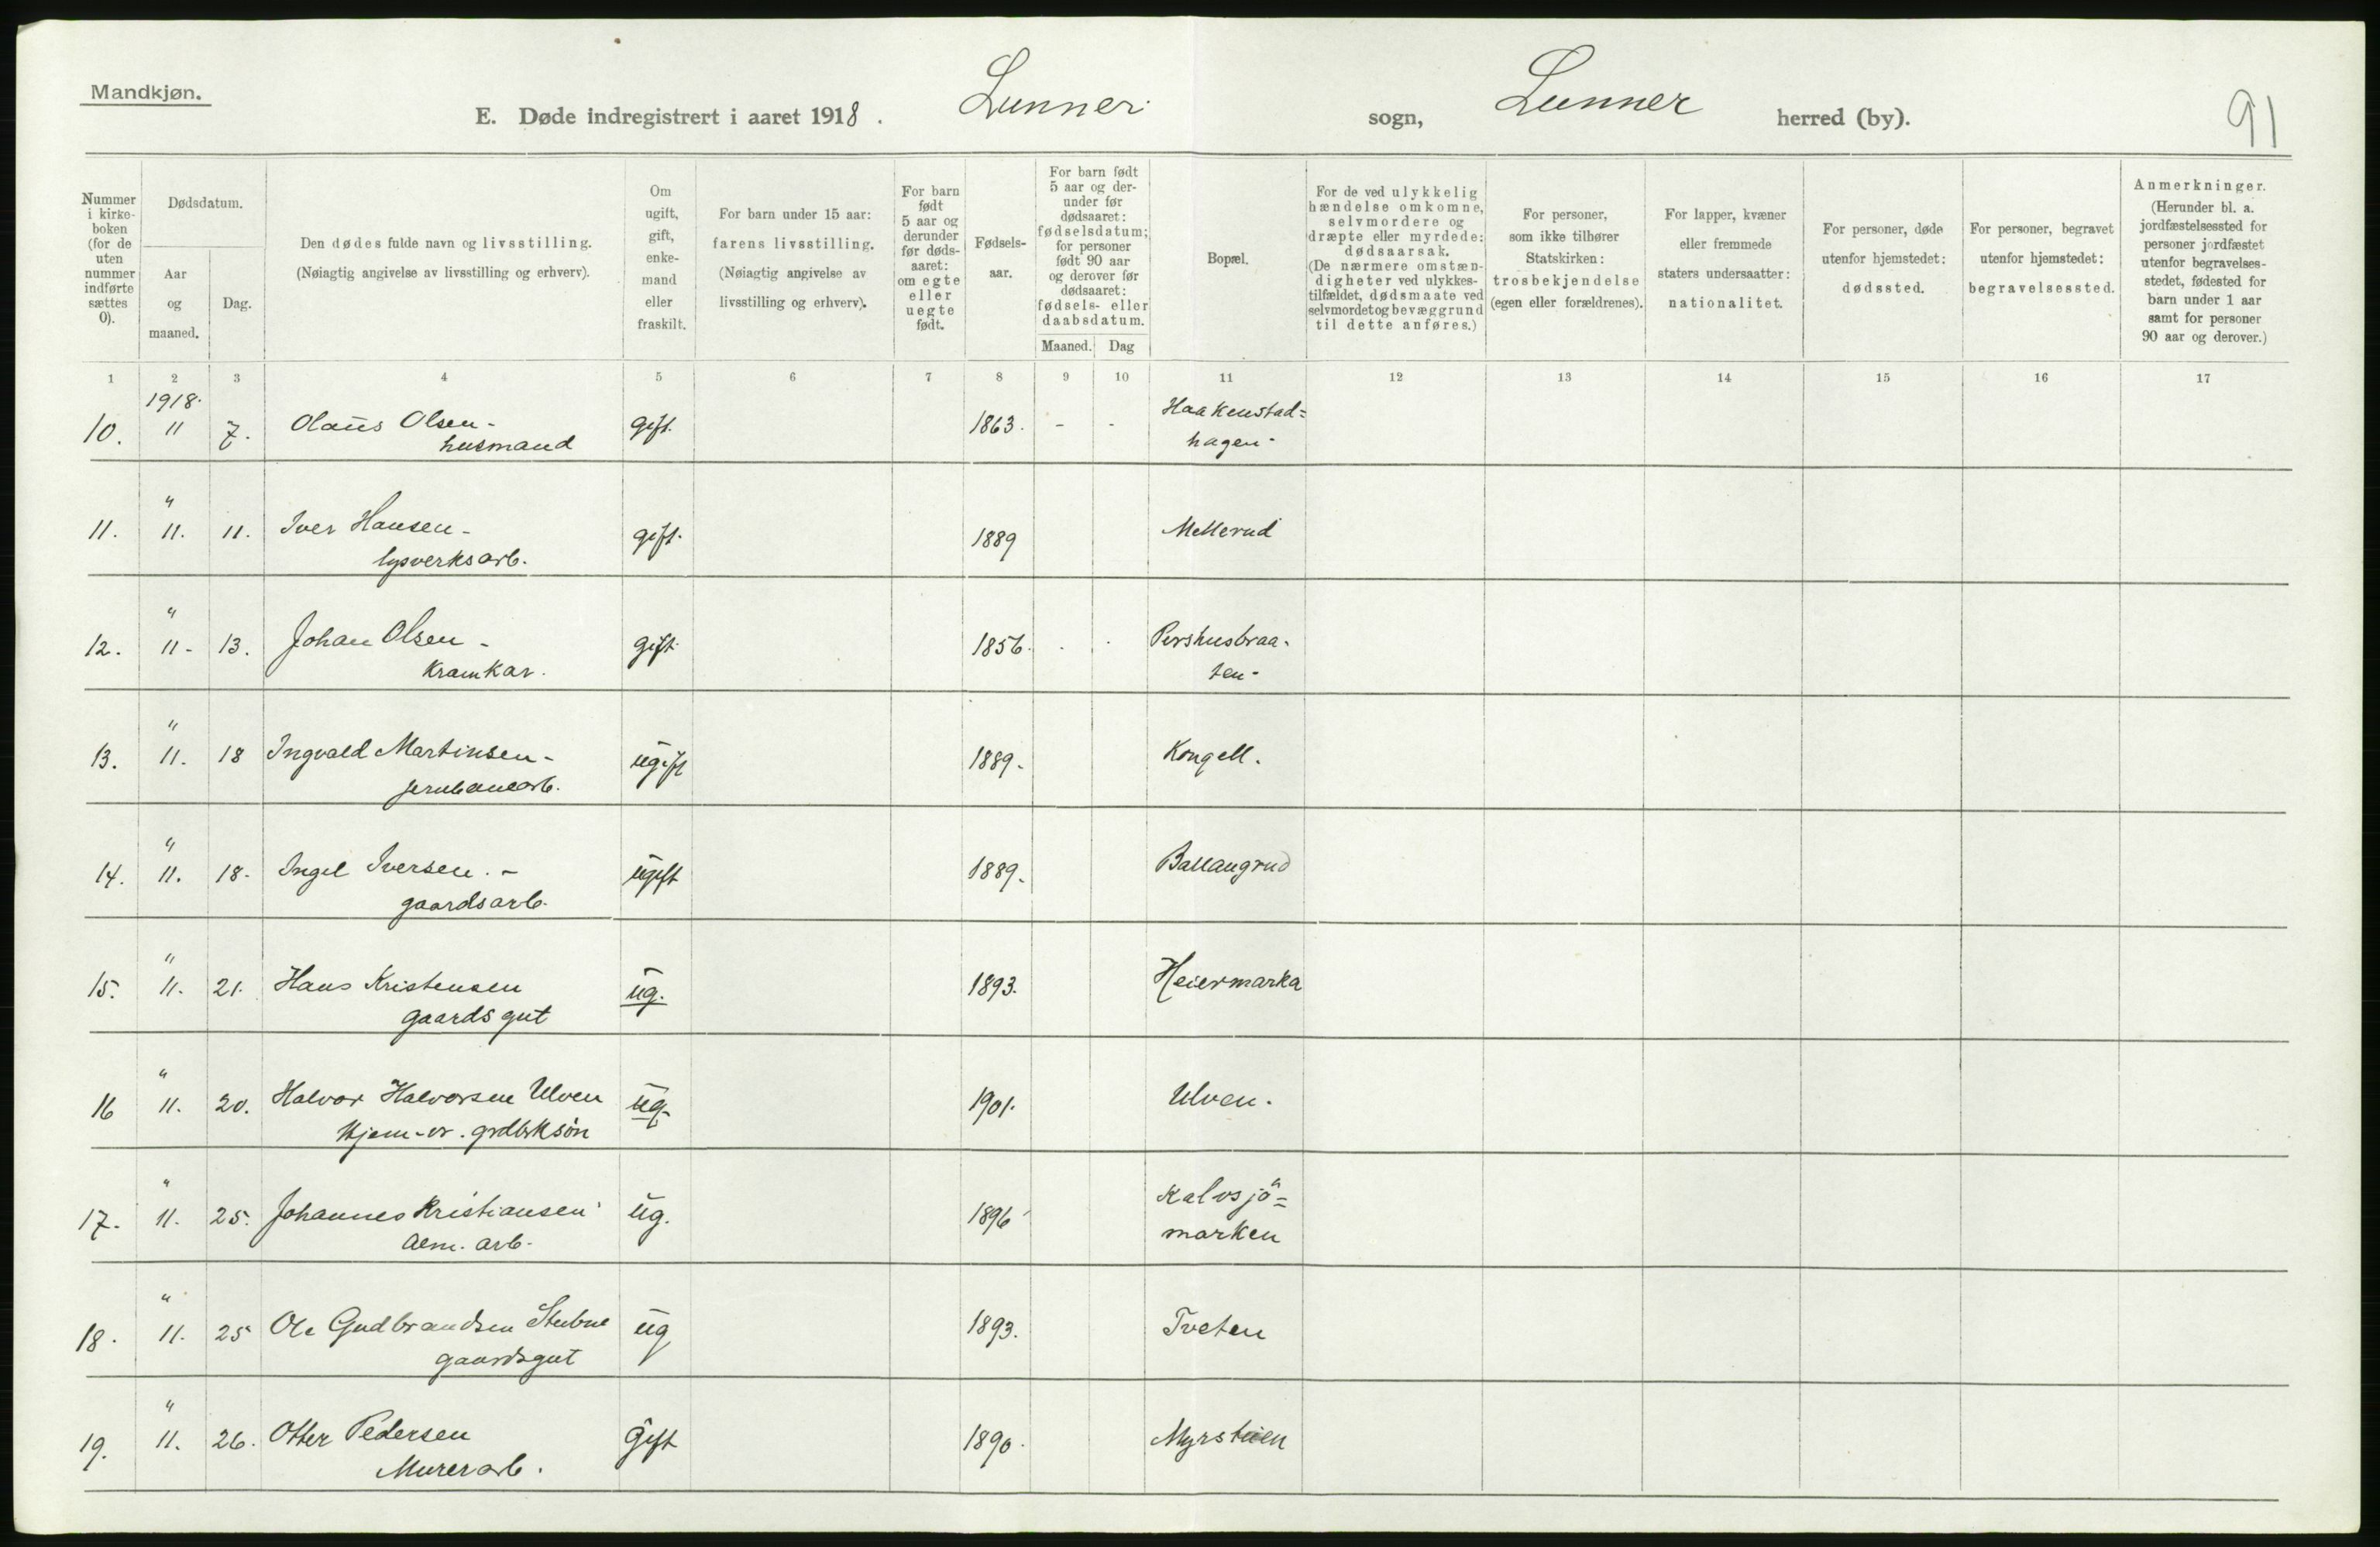 Mandkjøn.
E. Døde indregistrert i aaret 1918. Lunner sogn, Lunner herred (by).
91
Nummer i kirkeboken (for de uten nummer indførte sættes 0).
Dødsdatum.
Aar og maaned.
Dag.
Den dødes fulde navn og livsstilling.
(Nøiagtig angivelse av livsstilling og erhverv).
Om ugift, gift, enkemand eller fraskilt.
For barn under 15 aar: farens livsstilling.
(Nøiagtig angivelse av livsstilling og erhverv).
For barn født 5 aar og derunder før dødsaaret: om egte eller uegte født.
Fødselsaar.
For barn født 5 aar og derunder før dødsaaret: fødselsdatum; for personer født 90 aar og derover før dødsaaret: fødsels- eller daabsdatum.
Maaned. Dag
Bopæl.
For de ved ulykkelig hændelse omkomne, selvmordere og dræpte eller myrdede: dødsaarsak.
(De nærmere omstændigheter ved ulykkestilfældet, dødsmaate ved selvmordet og bevæggrund til dette anføres.)
For personer, som ikke tilhører Statskirken: trosbekjendelse (egen eller forældrenes).
For lapper, kvæner eller fremmede staters undersaatter: nationalitet.
For personer, døde utenfor hjemstedet: dødssted.
For personer, begravet utenfor hjemstedet: begravelsessted.
Anmerkninger.
(Herunder bl. a. jordfæstelsessted for personer jordfæstet utenfor begravelsesstedet, fødested for barn under 1 aar samt for personer 90 aar og derover.)
1 2 3 4 5 6 7 8 9 10 11 12 13 14 15 16 17
1918.
10. 11 7. Olaus Olsen - gift. 1863. - - Haakenstad=
husmand hagen-
"
11. 11. 11. Iver Hansen - gift. 1889 Mellerud
lysverksarb.
"
12. 11- 13. Johan Olsen - gift. 1856. Pershusbraa-
Kramkar. ten-
"
13. 11. 18 Ingvald Martinsen - ugift 1889. Kongell.
jernbanearb.
"
14. 11. 18. Ingel Iversen. - ugift 1889. Ballangrud
gaardsarb.
"
15. 11. 21. Hans Kristensen ug. 1893. Heiermarka
gaardsgut
"
16 11. 20. Halvor Halvorsen Ulven ug. 1901. Ulven.
Hjem-vr. grdbrksøn
"
17. 11. 25. Johannes Kristiansen ug. 1896 Kalvsjö=
alm. arb. marken
"
18. 11. 25 Ole Gudbrandsen Stubne ug 1893. Tveten
gaardsgut
"
19. 11. 26. Otter Pedersen Gift 1890. Myrstuen
Murerarb.